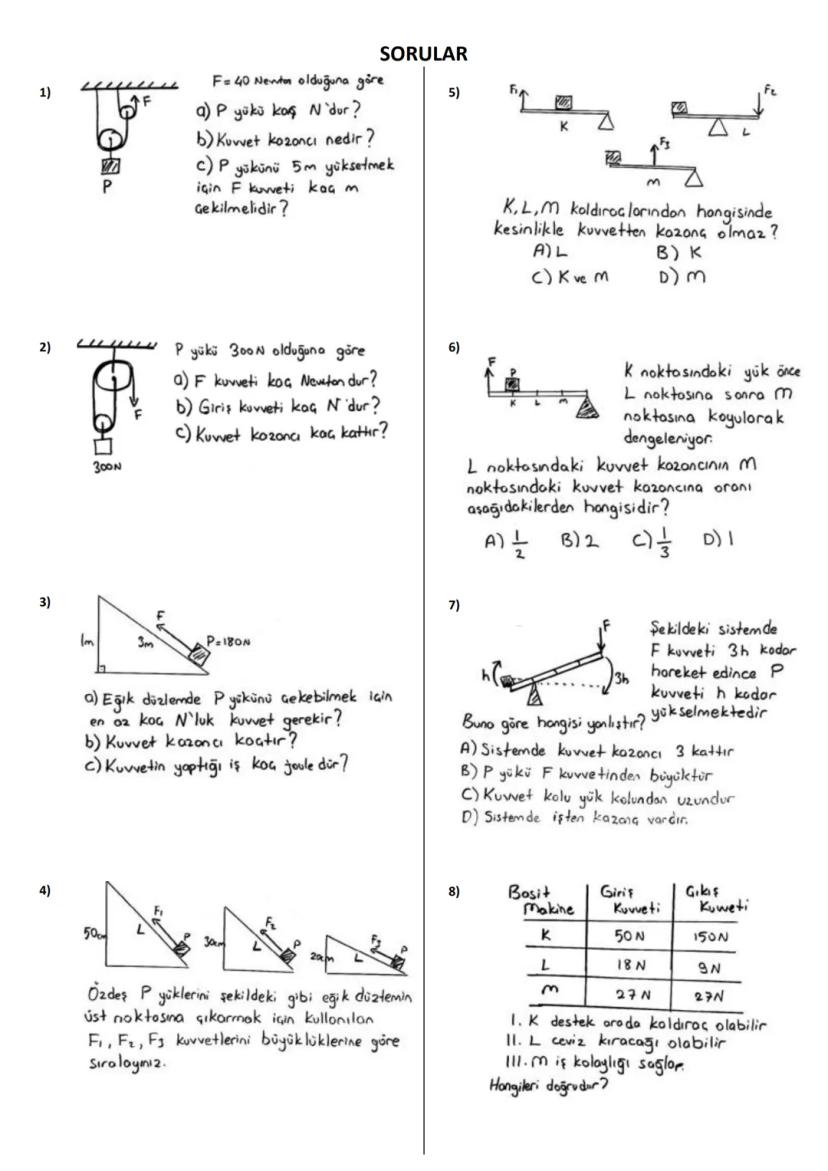 SORULAR
1)
F= 40 Newton olduğuna göre
a) P yükü kaç N'dur?
b) Kuvvet kazancı nedir?
c) P yükünü 5m yükseltmek
için F kuvveti kaç m
çekilmelidir?
F
P
2)
P yükü 300N olduğuna göre
a) F kuvveti kaç Newtondur?
b) Giriş kuvveti kaç N'dur?
c) Kuvvet kazancı kaç kattır?
F
300N
3)
F
1m
3m
P=180N
a) Eğik düzlemde P yükünü çekebilmek için
en az kaç N'luk kuvvet gerekir?
b) Kuvvet kazancı kaçtır?
c) Kuvvetin yaptığı iş kaç joule dür?
4)
50cm
L
F1
P
30cm
L
F2
P
20cm
L
F3
P
Özdeş P yüklerini şekildeki gibi eğik düzlemin
üst noktasına çıkarmak için kullanılan
F1, F2, F3 kuvvetlerini büyüklüklerine göre
sıralayınız.
5)
F1
K
F2
L
F3
M
K, L, M kaldıraçlarından hangisinde
kesinlikle kuvvetten kazanç olmaz?
A) L
B) K
C) K ve M
D) M
6)
F
P
K
L
M
K noktasındaki yük önce
L noktasına sonra M
noktasına koyularak
dengeleniyor.
L noktasındaki kuvvet kazancının M
noktasındaki kuvvet kazancına oranı
aşağıdakilerden hangisidir?
A) 1/2
B) 2
C) 1/3
D) 1
7)
F
h
3h
Şekildeki sistemde
F kuvveti 3h kadar
hareket edince P
kuvveti h kadar
yükselmektedir
Buna göre hangisi yanlıştır?
A) Sistemde kuvvet kazancı 3 kattır
B) P yükü F kuvvetinden büyüktür
C) Kuvvet kolu yük kolundan uzundur
D) Sistemde işten kazanç vardır.
8)
Basit Makine
Giriş Kuvveti
Çıkış Kuvveti
K 50N 150N
L 18N 9N
M 27N 27N
I. K destek arada kaldıraç olabilir
II. L ceviz kıracağı olabilir
III. M iş kolaylığı sağlar.
Hangileri doğrudur?